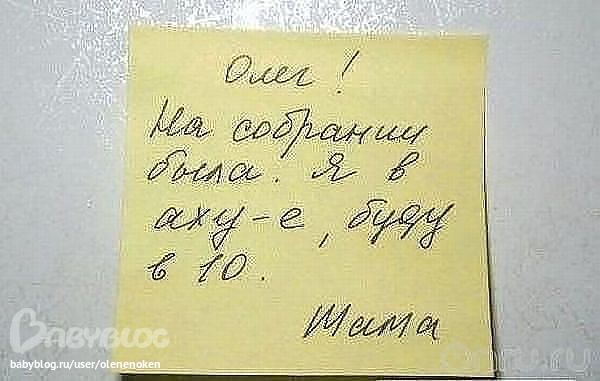 Олег!
На собрании
была. Я в
аху-е, буду
в 10.
Мама
BABYBLOG
babyblog.ru/user/olenenoken